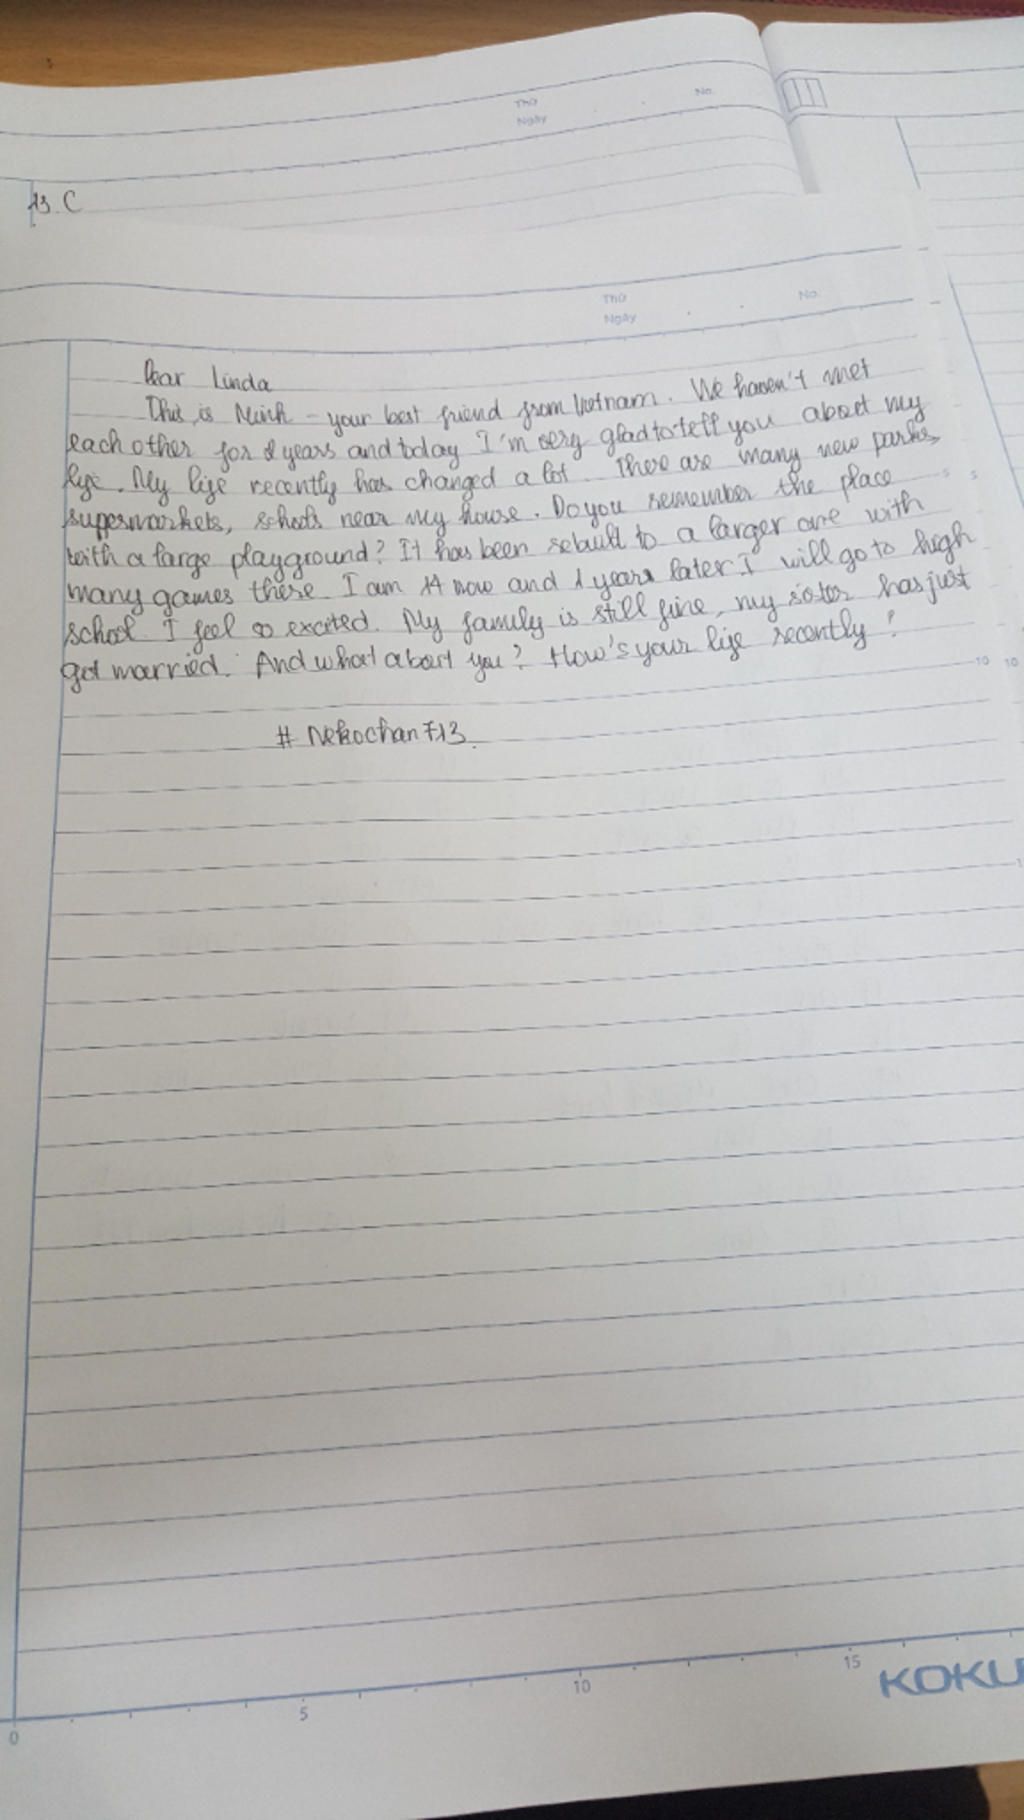 Thứ
Ngày
No.
13. C
Thứ
Ngày
No.
Dear Linda
This is Minh - your best friend from Vietnam. We haven't met
each other for 2 years and today I'm very glad to tell you about my
life. My life recently has changed a lot. There are many new parks,
supermarkets, schools near my house. Do you remember the place
with a large playground? It has been rebuilt to a larger one with
many games there. I am 14 now and 1 years later I will go to high
school. I feel so excited. My family is still fine, my sister has just
got married. And what about you? How's your life recently?
# Nekochan713
5 5
10 10
0 5 10 15
KOKU